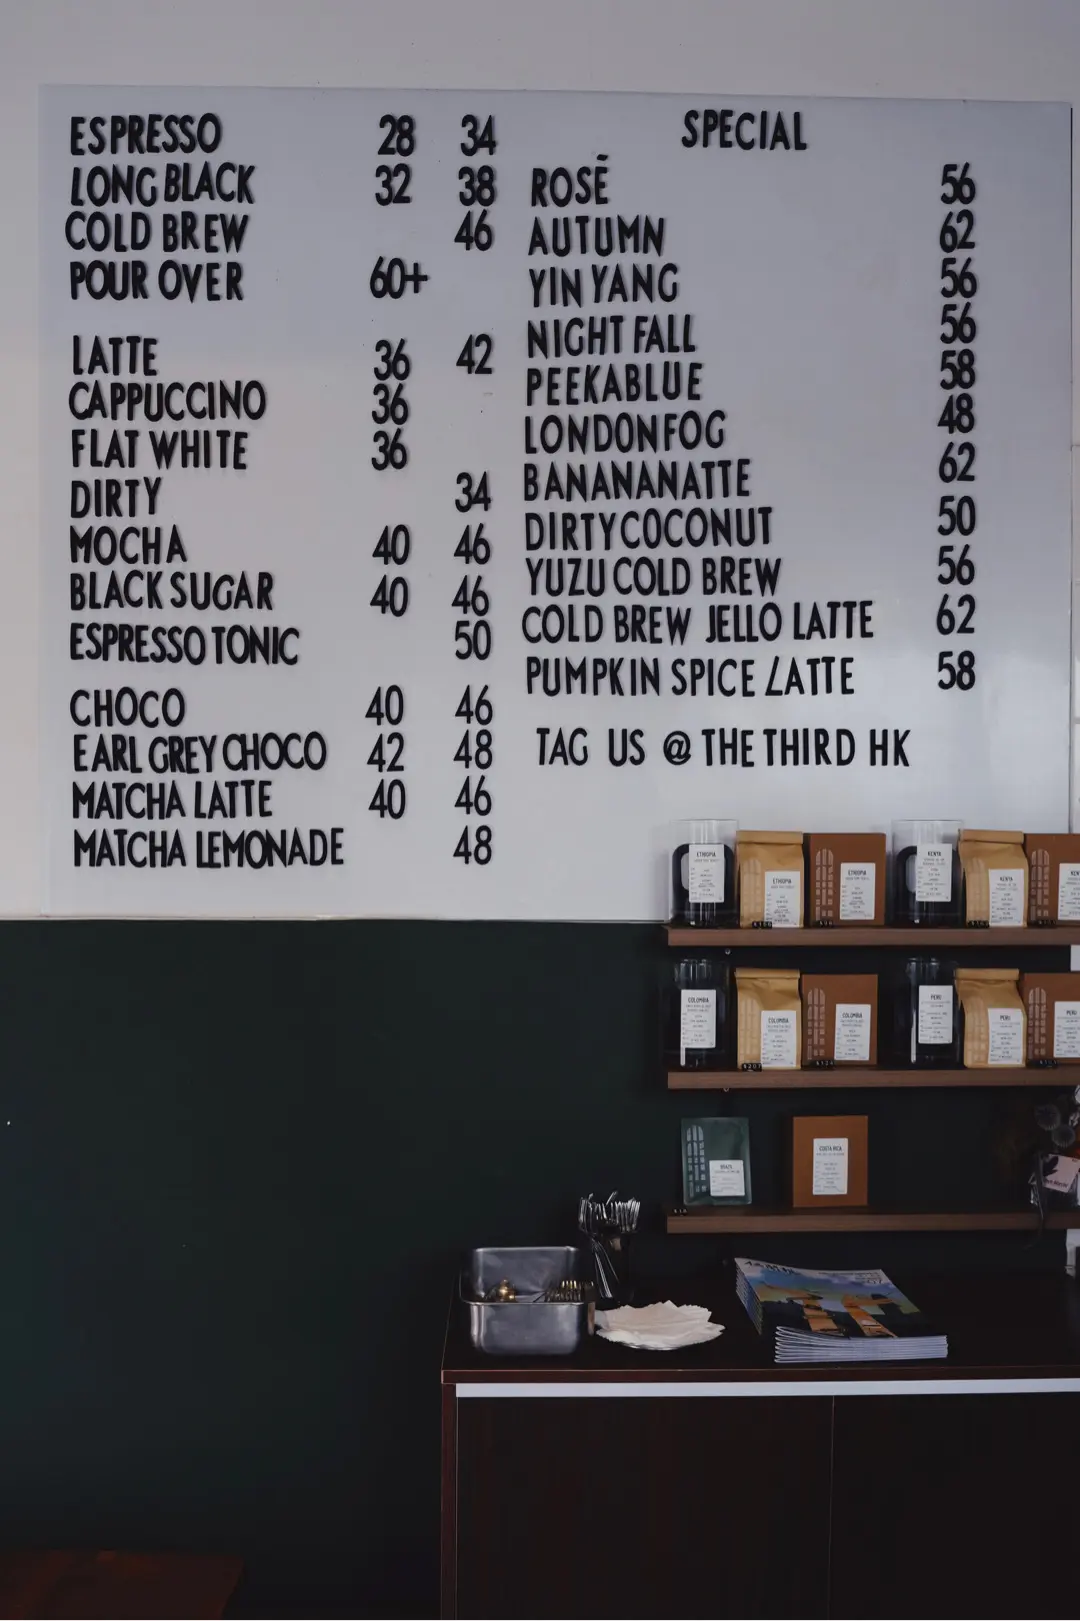 ESPRESSO 28 34
LONG BLACK 32 38
COLD BREW 46
POUR OVER 60+
LATTE 36 42
CAPPUCCINO 36
FLAT WHITE 36
DIRTY 34
MOCHA 40 46
BLACK SUGAR 40 46
ESPRESSO TONIC 50
CHOCO 40 46
EARL GREY CHOCO 42 48
MATCHA LATTE 40 46
MATCHA LEMONADE 48
SPECIAL
ROSÉ 56
AUTUMN 62
YIN YANG 56
NIGHT FALL 56
PEEKABLUE 58
LONDON FOG 48
BANANANATTE 62
DIRTY COCONUT 50
YUZU COLD BREW 56
COLD BREW JELLO LATTE 62
PUMPKIN SPICE LATTE 58
TAG US @ THE THIRD HK
ETHIOPIA
ETHIOPIA
ETHIOPIA
KENYA
KENYA
KENYA
COLOMBIA
COLOMBIA
COLOMBIA
PERU
PERU
PERU
BRAZIL
COSTA RICA